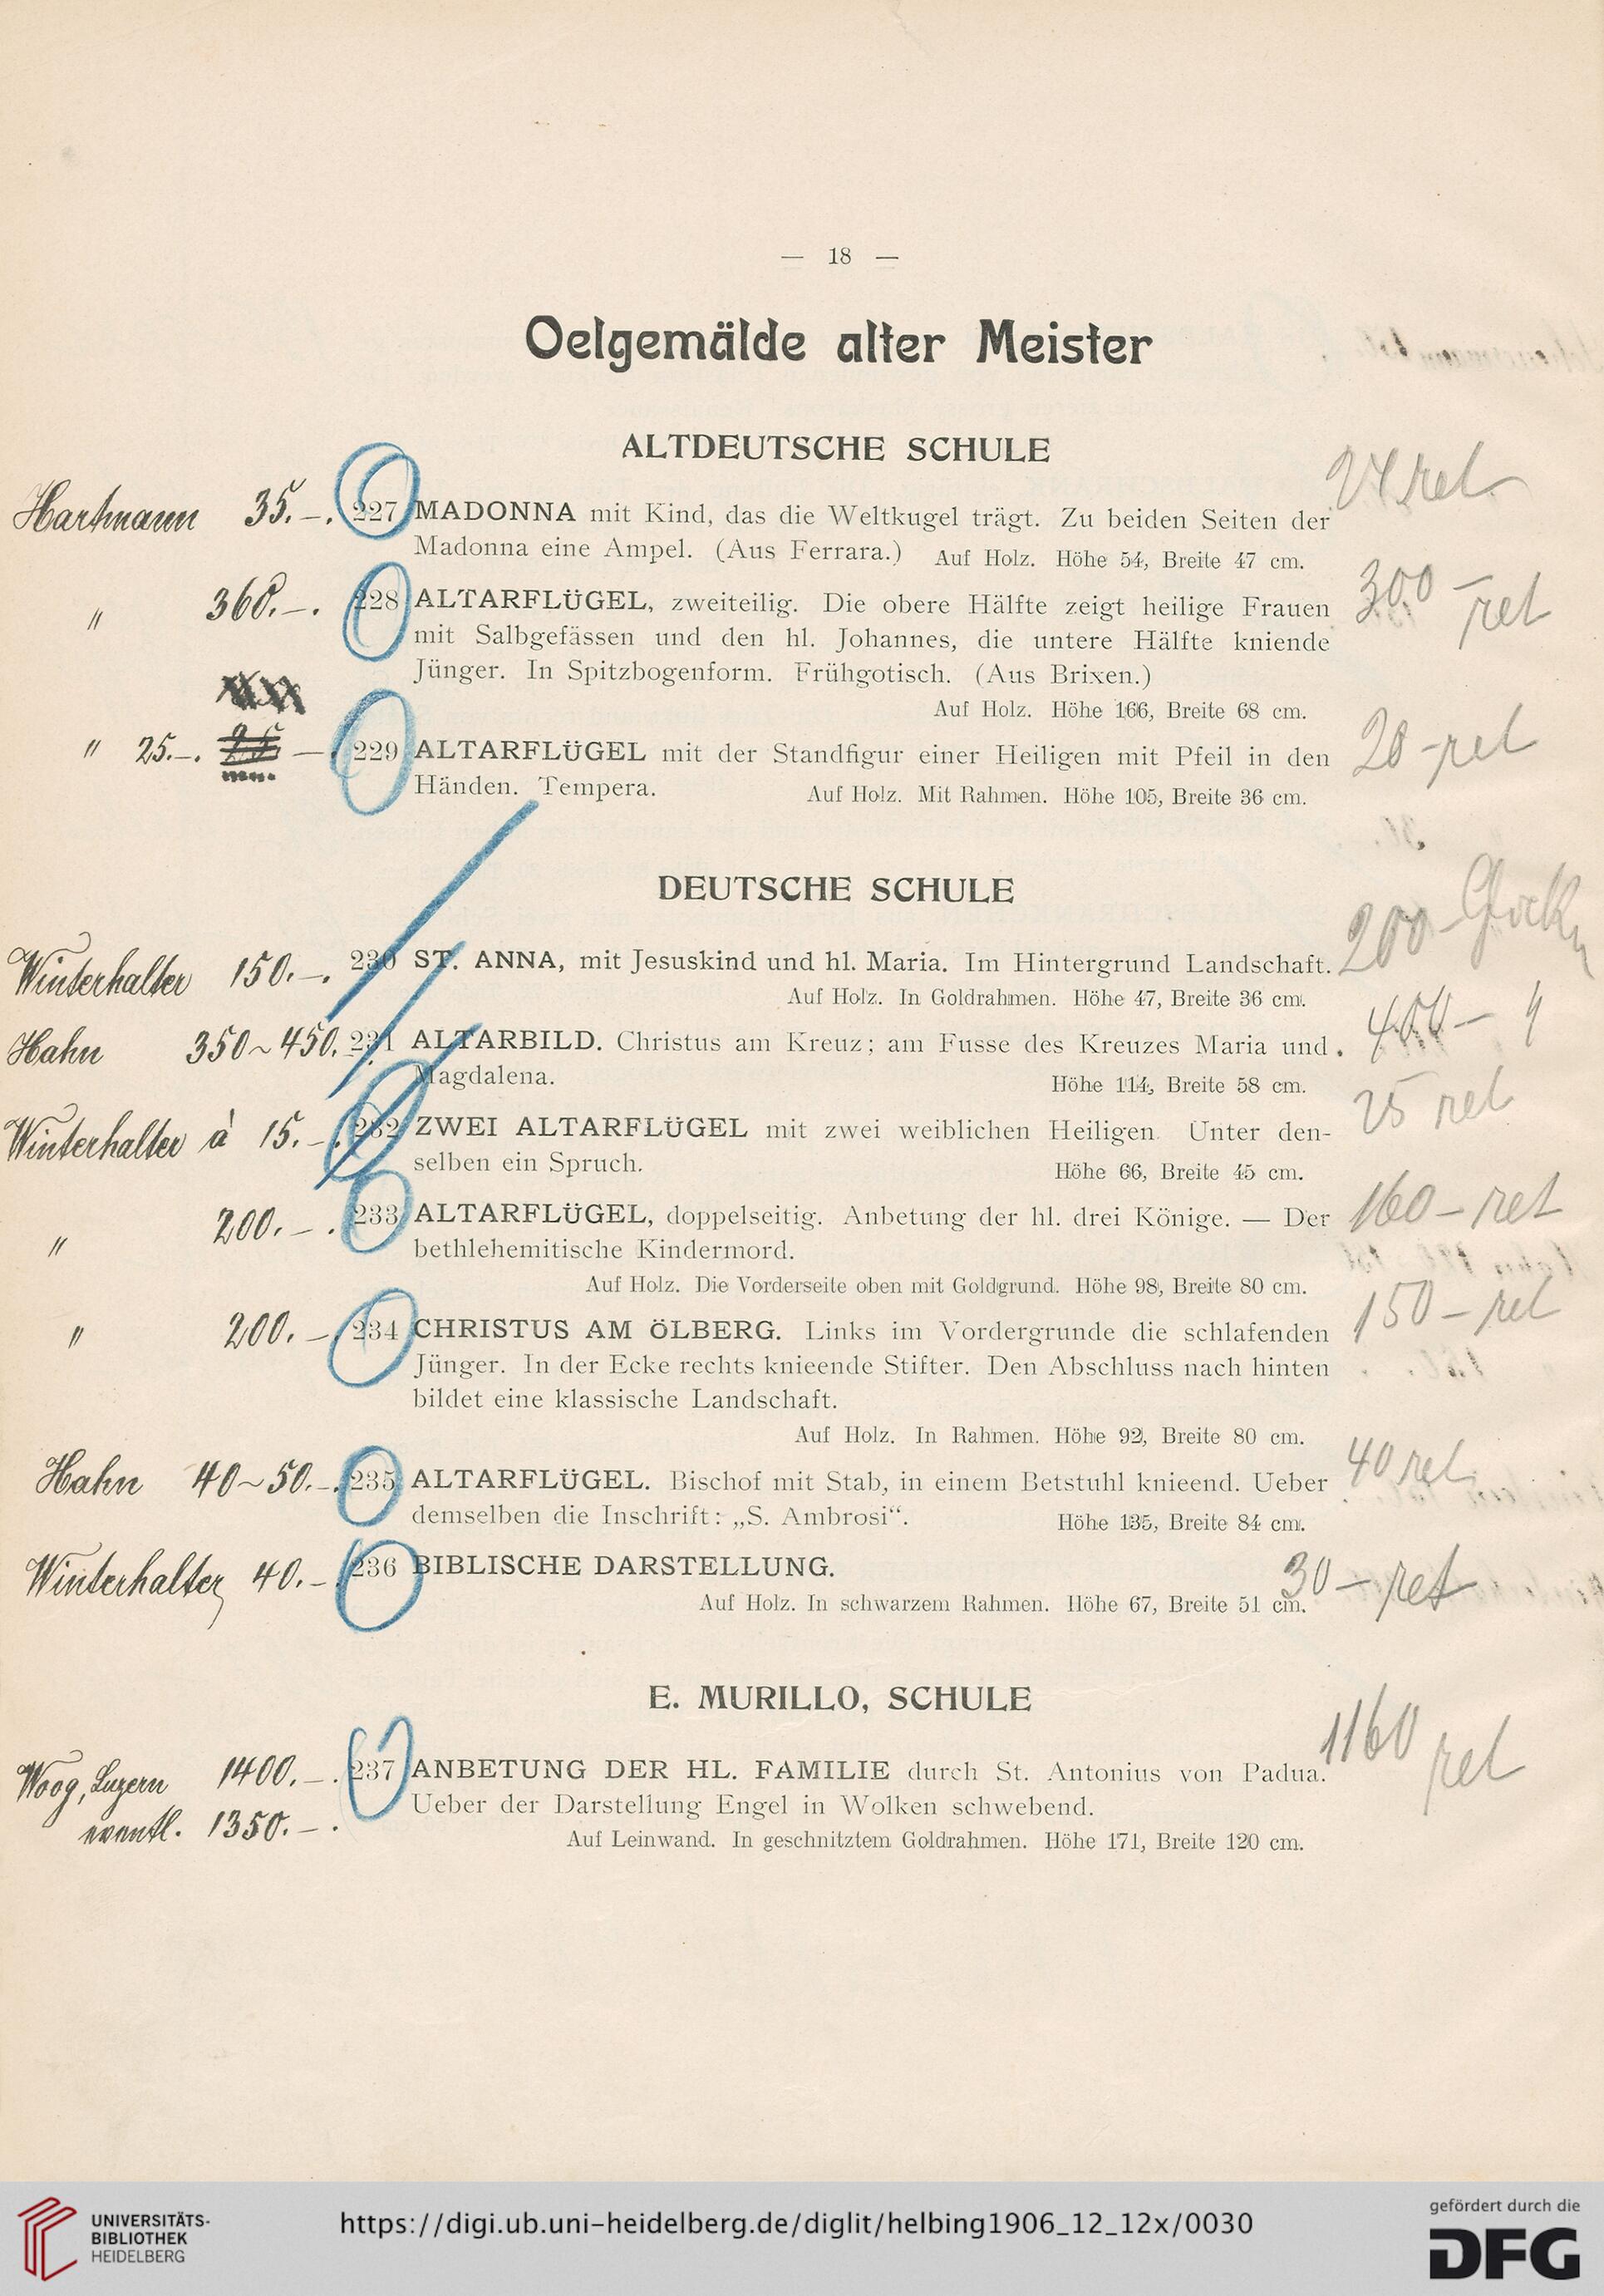 — 18 —
Oelgemälde alter Meister
ALTDEUTSCHE SCHULE
24 ret.
Hartmann 35.–. 227 MADONNA mit Kind, das die Weltkugel trägt. Zu beiden Seiten der
Madonna eine Ampel. (Aus Ferrara.) Auf Holz. Höhe 54, Breite 47 cm.
" 360.–. 228 ALTARFLÜGEL, zweiteilig. Die obere Hälfte zeigt heilige Frauen 300 – ret
mit Salbgefässen und den hl. Johannes, die untere Hälfte kniende
Jünger. In Spitzbogenform. Frühgotisch. (Aus Brixen.)
Auf Holz. Höhe 166, Breite 68 cm.
" 25.–. 229 ALTARFLÜGEL mit der Standfigur einer Heiligen mit Pfeil in den 20 – ret
Händen. Tempera. Auf Holz. Mit Rahmen. Höhe 105, Breite 36 cm.
DEUTSCHE SCHULE
Winterhalter 150.–. 230 ST. ANNA, mit Jesuskind und hl. Maria. Im Hintergrund Landschaft. 200 –
Auf Holz. In Goldrahmen. Höhe 47, Breite 36 cm.
Hahn 350~450. 231 ALTARBILD. Christus am Kreuz; am Fusse des Kreuzes Maria und
Magdalena. Höhe 114, Breite 58 cm.
Winterhalter à 15.–. 232 ZWEI ALTARFLÜGEL mit zwei weiblichen Heiligen. Unter den- 25 ret
selben ein Spruch. Höhe 66, Breite 45 cm.
" 200.–. 233 ALTARFLÜGEL, doppelseitig. Anbetung der hl. drei Könige. — Der 160 – ret
bethlehemitische Kindermord.
Auf Holz. Die Vorderseite oben mit Goldgrund. Höhe 98, Breite 80 cm.
" 200.– 234 CHRISTUS AM ÖLBERG. Links im Vordergrunde die schlafenden 150 – ret
Jünger. In der Ecke rechts knieende Stifter. Den Abschluss nach hinten
bildet eine klassische Landschaft.
Auf Holz. In Rahmen. Höhe 92, Breite 80 cm.
Hahn 40~50.–. 235 ALTARFLÜGEL. Bischof mit Stab, in einem Betstuhl knieend. Ueber 40 ret.
demselben die Inschrift: „S. Ambrosi“. Höhe 135, Breite 84 cm.
Winterhalter 40.–. 236 BIBLISCHE DARSTELLUNG. 30 – ret
Auf Holz. In schwarzem Rahmen. Höhe 67, Breite 51 cm.
E. MURILLO, SCHULE
Woog, Luzern 1400.–. 237 ANBETUNG DER HL. FAMILIE durch St. Antonius von Padua. 1160 ret
eventl. 1350.–. Ueber der Darstellung Engel in Wolken schwebend.
Auf Leinwand. In geschnitztem Goldrahmen. Höhe 171, Breite 120 cm.
UNIVERSITÄTS-
BIBLIOTHEK
HEIDELBERG
https://digi.ub.uni-heidelberg.de/diglit/helbing1906_12_12x/0030
gefördert durch die
DFG